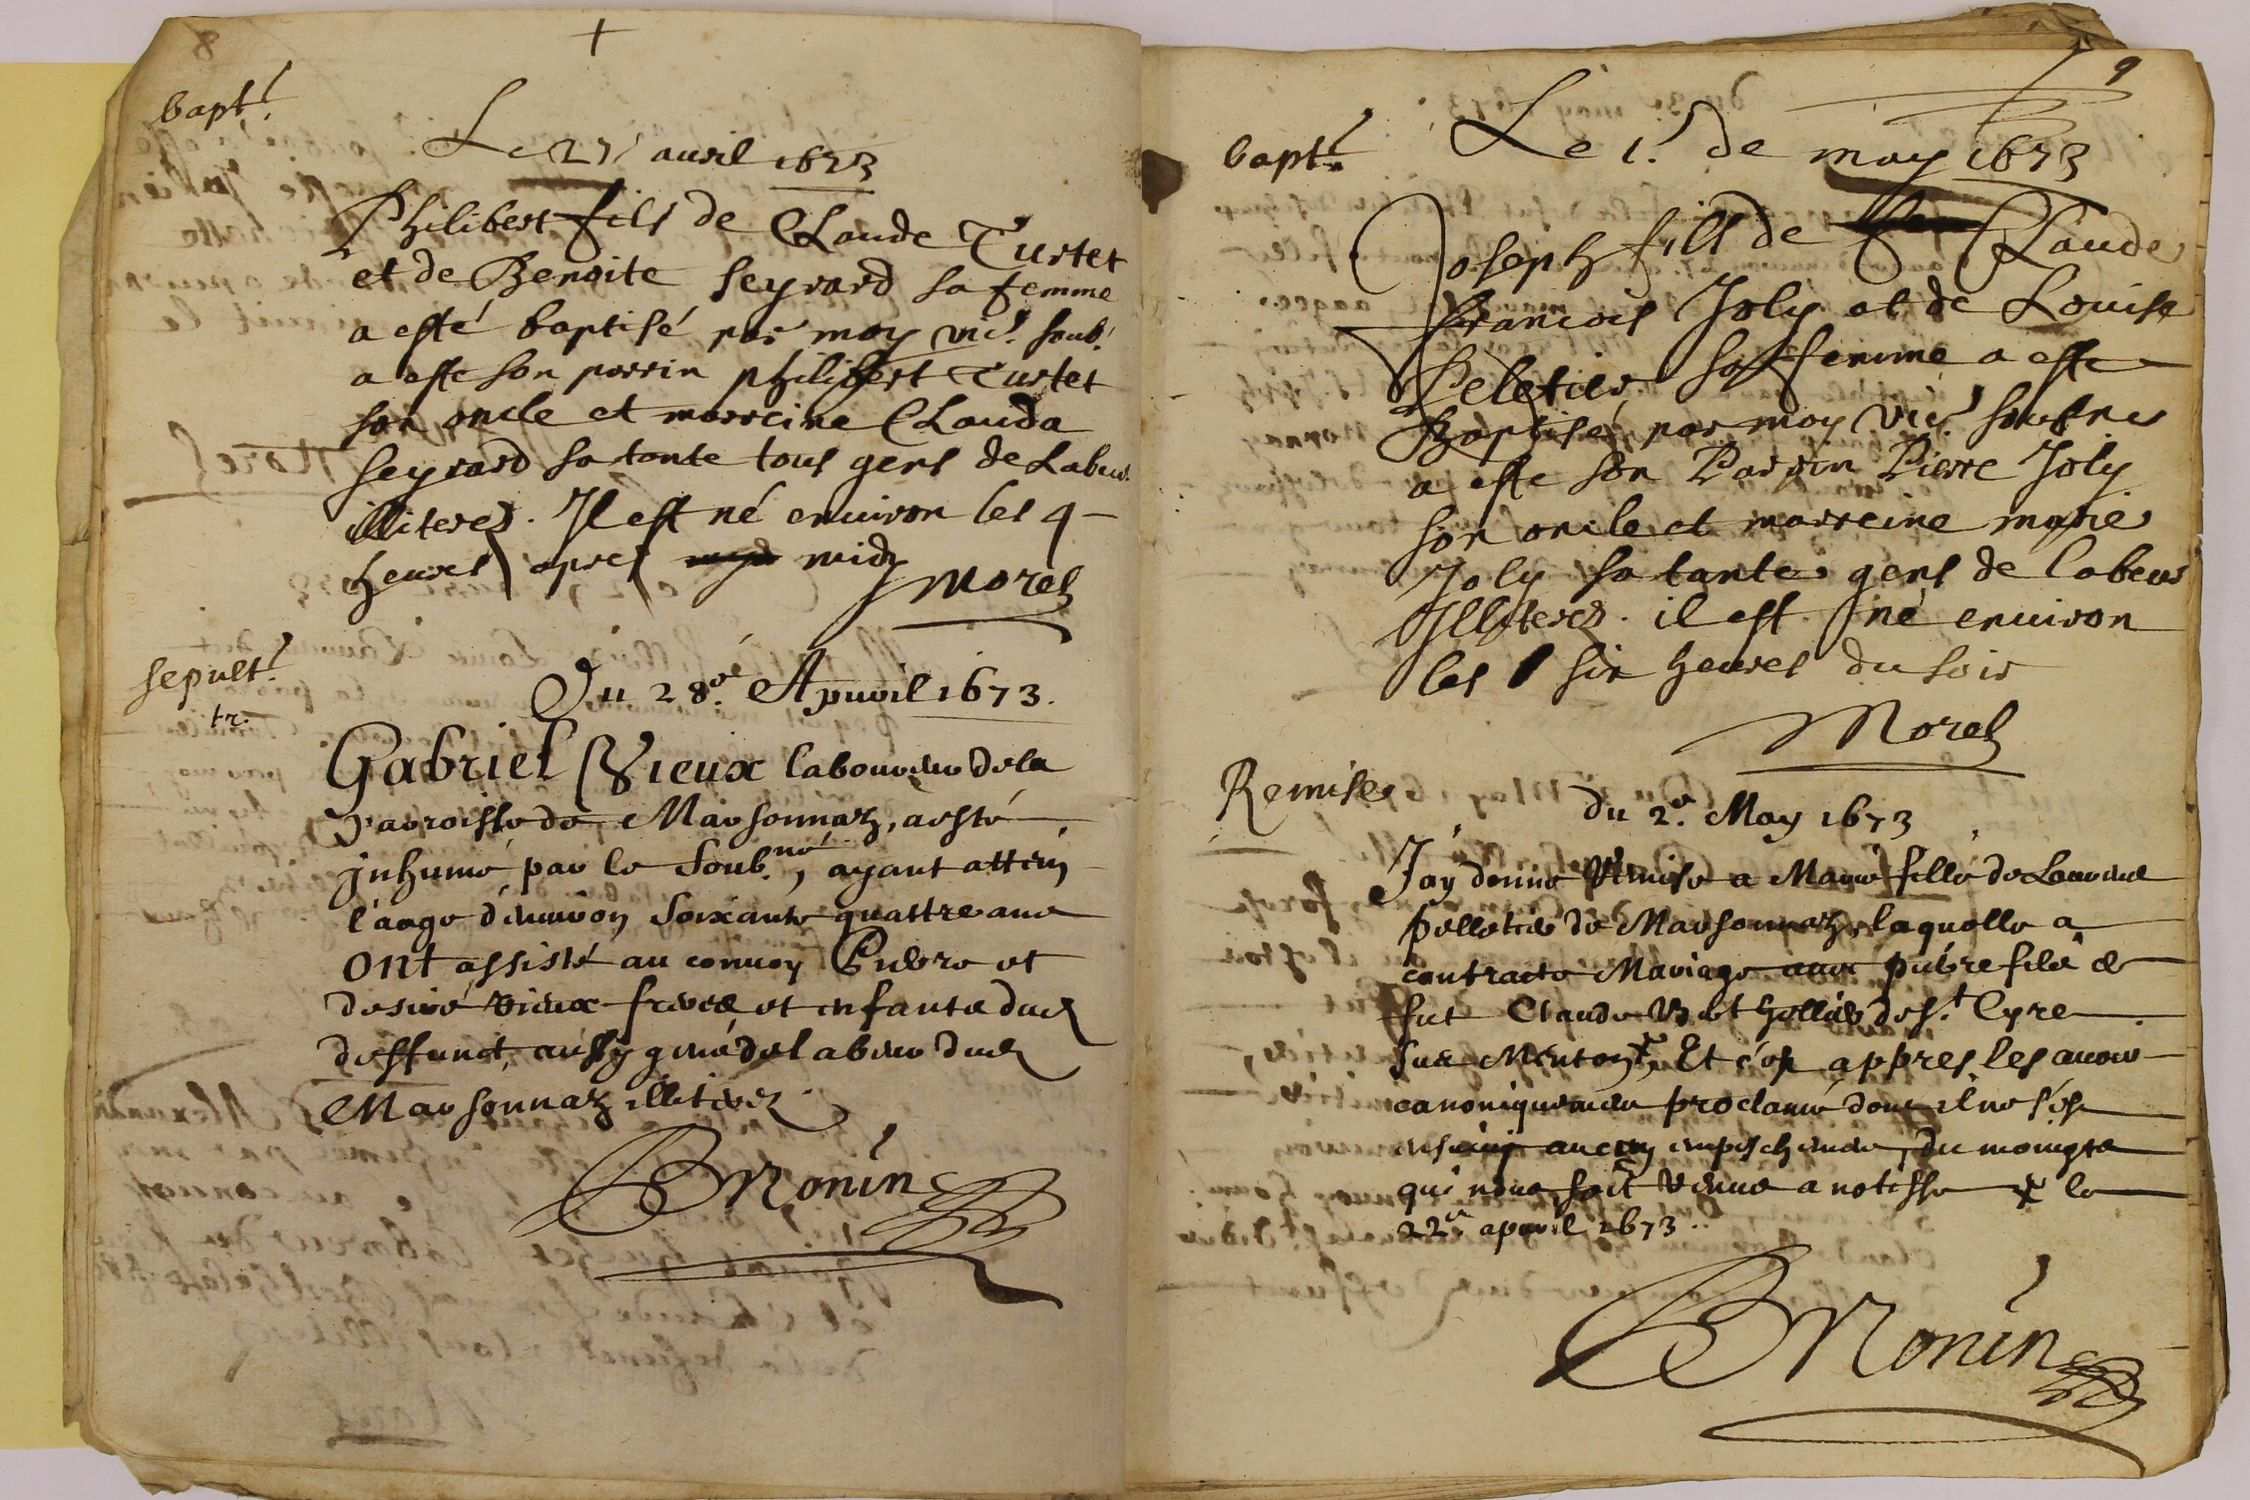 8
+
bapt.
Le 27 auril 1673
Philibert fils de Claude Turtet
et de Benoite Seyrard sa femme
a esté baptisé par moy vic. soub.
a este son parrin philibert Turtet
son oncle et marreine Clauda
Seyrard sa tante tous gens de Labeur
illiteres. Il est né enuiron les 4
heures apres midy
Morel
sepult.
tr.
Du 28e. Apuril 1673.
Gabriel Vieux laboureur de la
Parroisse de Marsonnaz, a esté
jnhumé par le Soub.né, ayant attein
l'aage d'enuiron Soixante quattre ans
ont assisté au conuoy Pierre et
desiré vieux freres et enfants dud
deffunct, aussy gens de labeur dud
Marsonnaz illiterez.
BMonin
9
bapt.
Le 1. de may 1673
Joseph fils de Claude
francois Joly et de Louise
Peletier sa femme a este
Baptisé par moy vic. soubne
a este son Parrin Pierre Joly
son oncle et marreine marie
Joly sa tante gens de labeur
Illiteres. il est né enuiron
les six heures du soir
Morel
Remise
du 2e. May 1673
J'ay donné Remise a Marie fille de Laurent
pelletier de Marsonnaz, laquelle a
contracté Mariage auec pierre fils de
fut Claude Bethellier de st. Cyre
sur Menton, Et c'est appres les auoir
canoniquement proclamé dont il ne s'est
ensuiuy aucun empeschement, du moingts
qui nous soit venus a notisse le
22e apuril 1673.
BMonin